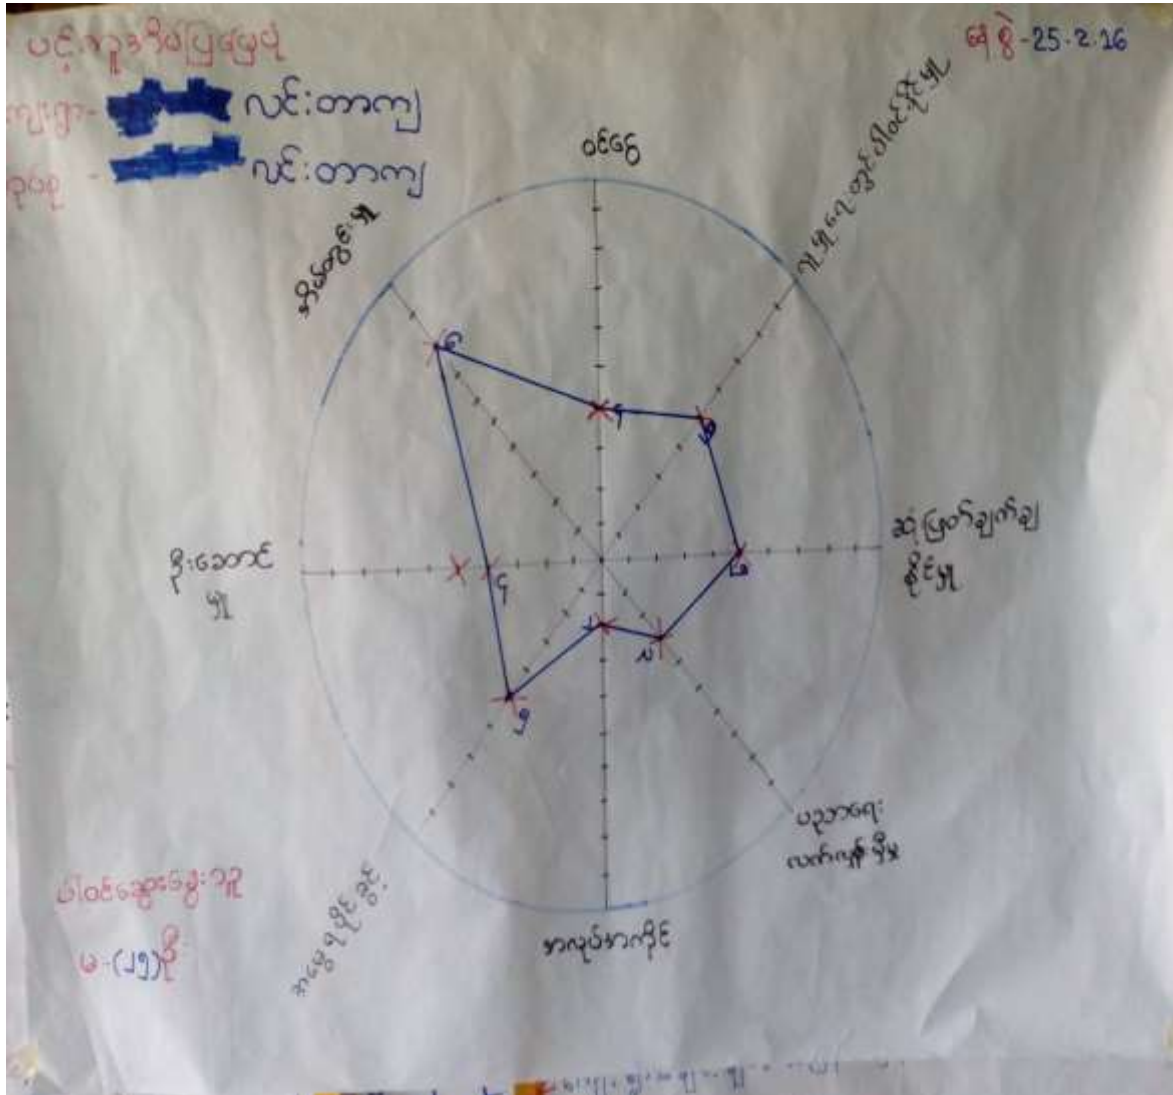 ပင့်ကူအိမ်ပြမြေပုံ
ကျေးရွာ- လင်းတာကျ
အုပ်စု - လင်းတာကျ
နေ့စွဲ-25.2.16
ဝင်ငွေ
လူမှုရေးတွင်ပါဝင်နိုင်မှု
ဆုံးဖြတ်ချက်ချ
နိုင်မှု
ပညာရေး
လက်လှမ်းမှီမှု
အလုပ်အကိုင်
အမွေရပိုင်ခွင့်
ဦးဆောင်
မှု
အိမ်တွင်းမှု
၄
၅
၂
၅
၄
ပါဝင်ဆွေးနွေးသူ
မ-(၂၅)ဦး